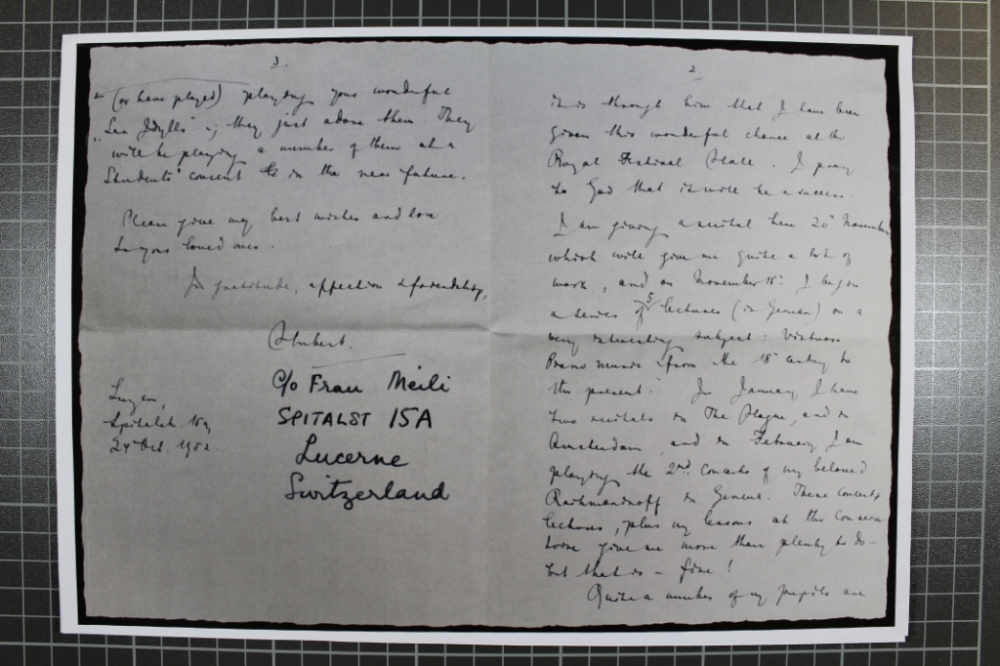 2
it is through him that I have been
given this wonderful chance at the
Royal Festival Hall. I pray
to God that it will be a success.
I am giving a recital here 20th November
which will give me quite a lot of
work, and on November 15th I begin
a series of 5 lectures (in German) on a
very interesting subject: Virtuoso
Piano music from the 18th century to
the present." In January I have
two recitals in The Hague, and in
Amsterdam, and in February I am
playing the 2nd Concerto of my beloved
Rachmaninoff in Geneva. These concerts
lectures, plus my lessons at the Conserva-
toire give me more than plenty to do —
but that is — fine!
Quite a number of my pupils are
3.
(or have played) playing your wonderful
"Sea Idylls"; they just adore them. They
will be playing a number of them at a
Students' concert in the near future.
Please give my best wishes and love
to your loved ones.
In gratitude, affection & friendship,
Hubert.
c/o Frau Meili
SPITALST 15A
Lucerne
Switzerland
Luzern,
Spitalst. 15a
24th Oct. 1952.